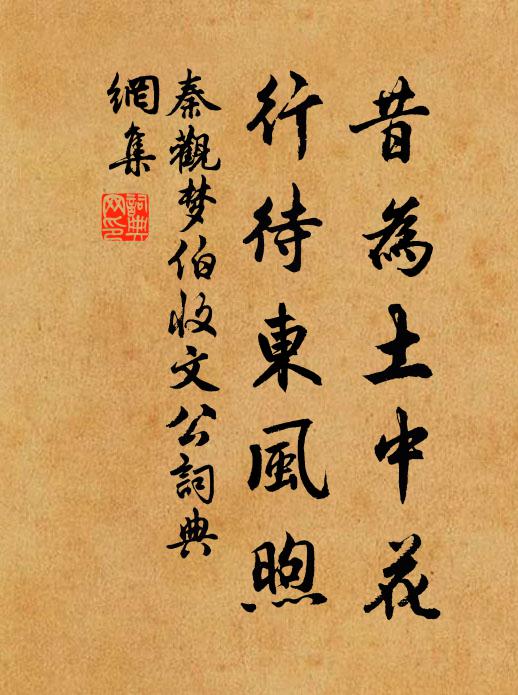 昔為土中花
行待東風煦
秦觀梦伯收文公詞典
網集
詞典网印